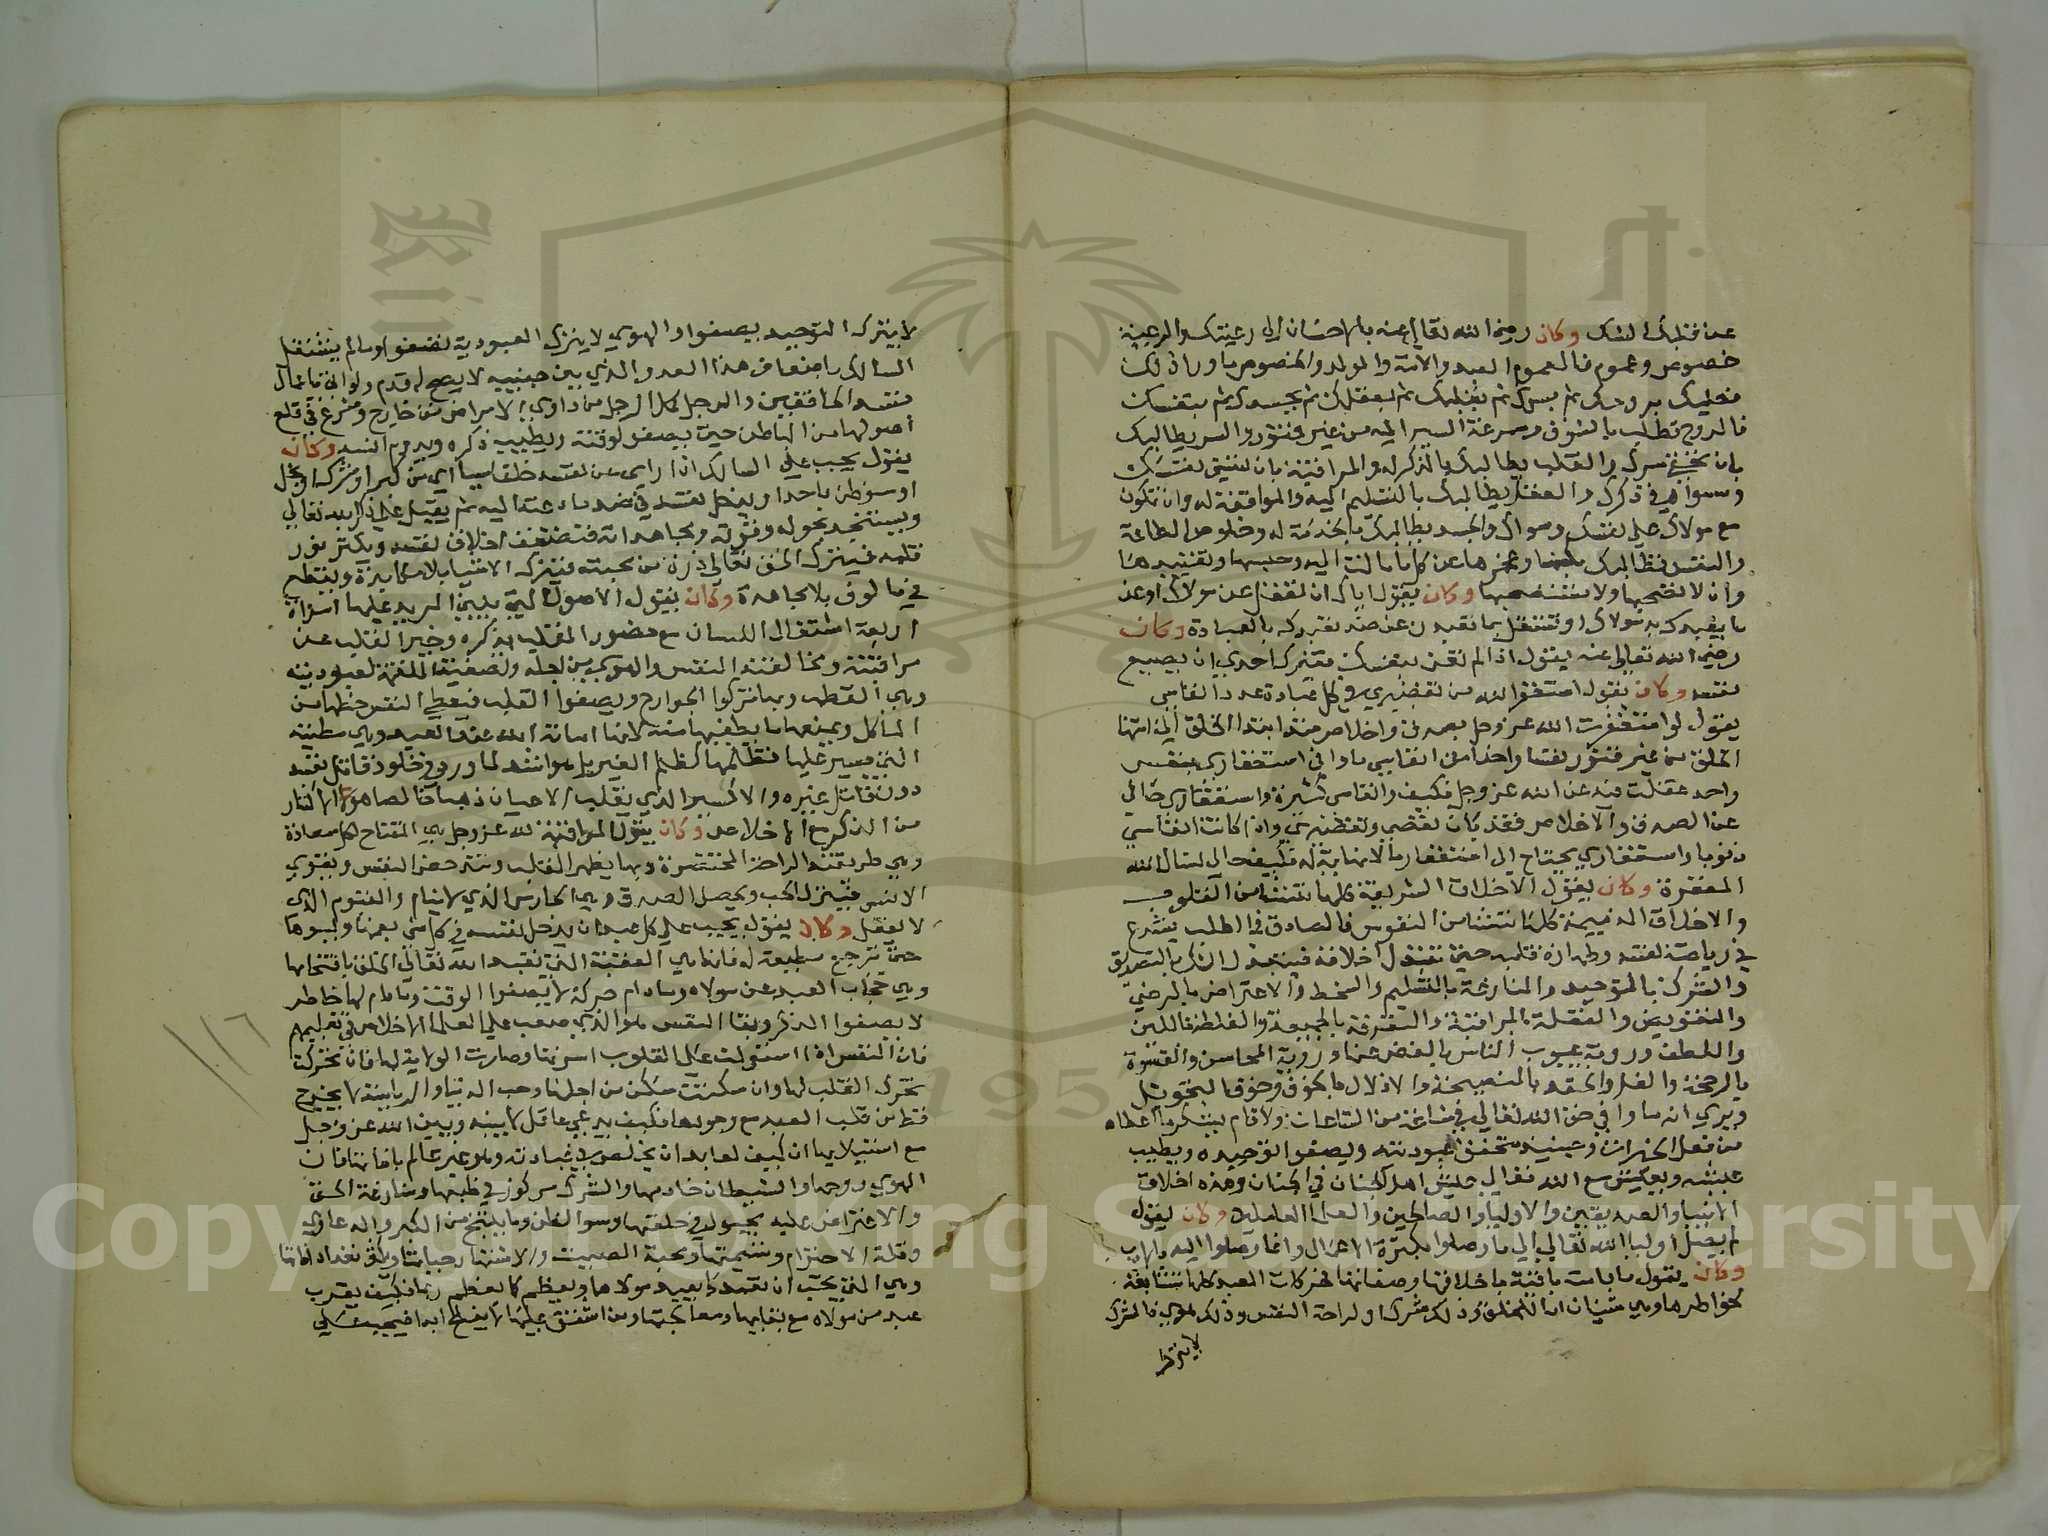 عن قتلك لنفسك وكان رضي الله تعالى عنه بالاحسان الى رعيتك والرعية
خصوص وعموم فالعموم العبد والامة والولد والخصوص ما وراء ذلك
فعليك بروحك ثم بسرك ثم بقلبك ثم بعقلك ثم بجسدك ثم بنفسك
فالروح تطلب بالشوق وسرعة السير اليه من غير فتور والسر يطالبك
بان تخفي سرك والقلب يطالبك بالذكر له والمراقبة بان تنسى نفسك
وسواه في ذكرك والعقل يطالبك بالتسليم اليه والموافقة له وان تكون
مع مولاك على نفسك وسواك والجسد يطالبك بالخدمة له وخلوص الطاعة
والنفس تطالبك بكفها وعزلها عن كل ما مالت اليه وحبسها وتقييدها
وان لا تصحبها ولا تستصحبها وكان يقول اياك ان تغفل عن مولاك او عن
ما يفيدك به مولاك او تشتغل بما تعبدن عن من تعبدكه بالعبادة وكان
رضي الله تعالى عنه يقول اذا لم تحسن بنفسك فغيرك احرى ان يضيع
نفسه وكان يقول استغفر الله من تقصيري في كل عبادة عدد انفاسي
يقول لو استغفرت الله عز وجل بصدق واخلاص منذ ابتدا الخلق الى انتها
الخلق من غير فتور نفسا واحدا من انفاسي ما وافى استغفاري بنفس
واحد غفلت فيه عن الله عز وجل فكيف وانفاسي كثيرة واستغفاري خالي
عن الصدق والاخلاص فقد بان نقصي وتقصيري واذا كانت انفاسي
ذنوبا واستغفاري يحتاج الى استغفار ما لا نهاية له فكيف حالي نسال الله
المغفرة وكان يقول الاخلاق الشريفة كلها تنشا من القلوب
والاخلاق الذميمة كلها تنشا من النفوس فالصادق في الطلب يشرع
في رياضة نفسه وطهارة قلبه حتى تتبدل اخلاقه فيبدل الشك بالتصديق
والشرك بالتوحيد والمنازعة بالتسليم والسخط والاعتراض بالرضى
والتفويض والغفلة بالمراقبة والتفرقة بالجمعية والغلظة باللين
واللطف ورؤية عيوب الناس بالغض عنها ورؤية المحاسن والقسوة
بالرحمة والغل والحقد بالنصيحة والادلال بالخوف وخوف التحويل
ويرى انه ما وافى حق الله تعالى في ساعة من الساعات ولا قام بشكر ما اعطاه
من فعل الخيرات وحينئذ تتحقق عبوديته ويصفو توحيده ويطيب
عيشه ويعيش مع الله تعالى عيش اهل الجنان في الجنان وهذه اخلاق
الانبيا والصديقين والاوليا والصالحين والعلما العاملين وكان يقول
لم يصل اوليا الله تعالى الى ما وصلوا بكثرة الاعمال وانما وصلوا اليه بالادب
وكان يقول ما دامت باقية باخلاقها وصفاتها فحركات العبد كلها متتابعة
لخواطرها وهي شيئان اما للخلق وذلك شرك او لراحة النفس وذلك هوى فالشرك
لا يترك
لا يترك التوحيد يصفو والهوى لا يترك العبودية تصفو وما لم يشتغل
السالك باضعاف هذا العدو الذي بين جنبيه لا يصح له قدم ولو اتى باعمال
تسد الخافقين والرجل كل الرجل من داوى الامراض من خارج وشرع في قلع
اصولها من الباطن حتى يصفو وقته ويطيب ذكره ويدوم انسه وكان
يقول يجب على السالك اذا راى من نفسه خلقا سيئا من كبر او شرك او بخل
او سوظن باحد ان يدخل نفسه في ضد ما دعته اليه ثم يقبل على ذكر الله تعالى
ويستنجد بحوله وقوته ومجاهداته فتضعف اخلاق نفسه ويكثر نور
قلبه فيترك الحق تعالى ذرة من محبته فيترك الاشيا بلا مكابدة ويقطع
في مالوف بلا مجاهدة وكان يقول الاصول التي يبني المريد عليها امره
اربعة اشتغال اللسان مع حضور القلب بذكره وجبر القلب على
مراقبته ومخالفة النفس والهوى من اجله وتصفية اللقمة لعبوديته
وهي القطب وبها تزكوا الجوارح ويصفوا القلب فيعطي النفس حظها من
الماكل ويمنعها ما يطغيها منه لانها امانة الله عند العبد وهي مطيته
التي يسير عليها فظلمها كظلم الغير بل هو اشد لما ورد في خلود قاتل نفسه
دون قاتل غيره والاكسير الذي يقلب الاعيان ذهبا خالصا هو الاكثار
من الذكر مع الاخلاص وكان يقول المراقبة لله عز وجل هي المفتاح لكل سعادة
وهي طريقة الراحة المختصرة وبها يطهر القلب وتندحض النفس ويقوى
الانس فينزل الحب ويحصل الصدق وهي الحارس الذي لا ينام والقيوم الذي
لا يغفل وكان يقول يجب على كل عبد ان يدخل نفسه في كل شي يغمها ويسوها
حتى ترجع مطيعة له فانها هي العقبة التي تعبد الله تعالى الخلق باقتحامها
وهي حجاب العبد عن مولاه وما دام حركة لا يصفوا الوقت وما دام لها خاطر
لا يصفوا الذكر وبقا النفس هو الذي صعب على العلما الاخلاص في تعليمهم
فان النفس اذا استولت على القلوب اسرتها وصارت الولاية لها فان تحركت
تحرك القلب لها وان سكنت سكن من اجلها وحب الدنيا والرياسة لا يخرج
قط من قلب العبد مع وجودها فكيف يدعي عاقل لا بينه وبين الله عز وجل
مع استيلايها ام كيف لعابد ان يخلص في عبادته وهو غير عالم بافاتها فان
الهوى روحها والشيطان خادمها والشرك مركوز في طبعها ومنازعة الحق
والاعتراض عليه مجبول في خلقتها وسوا الظن وما ينتج من الكبر والدعاوى
وقلة الاحترام وشيمتها ومحبة الصيت والاشتهار حياتها ويكثر تعداد افاتها
وهي التي تحب ان تعبد كما يعبد مولاها وتعظم كما يعظم ربها فكيف يقرب
عبد من مولاه مع بقايها ومصالحتها ومن اشفق عليها لا يفلح ابدا فيجب على
١١٦
Copyright © King Saud University
1957